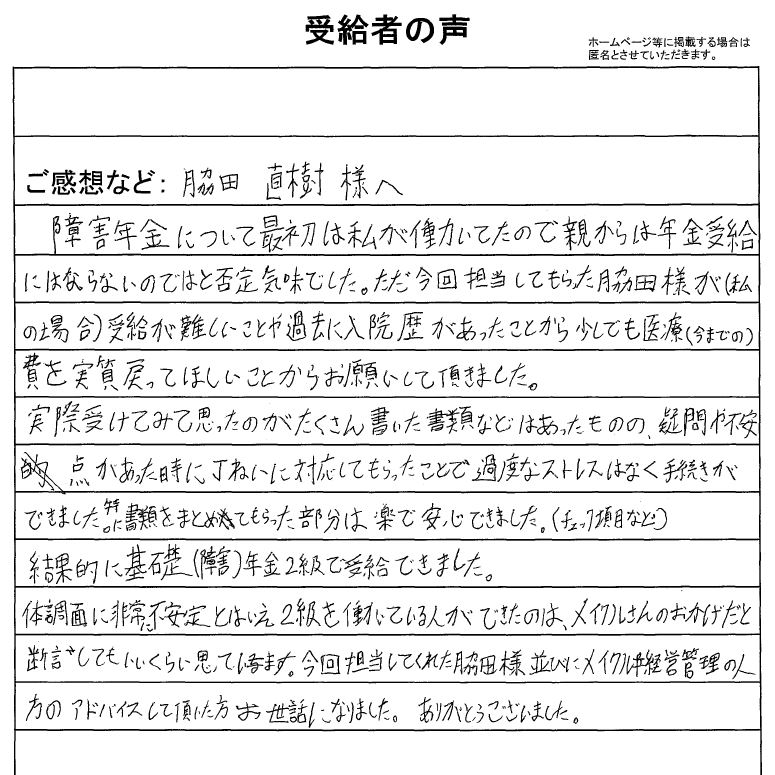 受給者の声
ホームページ等に掲載する場合は
匿名とさせていただきます。
ご感想など: 脇田 直樹 様へ
障害年金について最初は私が働いてたので親からは年金受給
にはならないのではと否定気味でした。ただ今回担当してもらった脇田様が(私
の場合)受給が難しいことや過去に入院歴があったことから少しでも医療(今までの)
費を実質戻ってほしいことからお願いして頂きました。
実際受けてみて思ったのがたくさん書いた書類などはあったものの、疑問や不安
点があった時に丁ねいに対応してもらったことで過度なストレスはなく手続きが
できました。特に書類をまとめてもらった部分は楽で安心できました。(チェック項目など)
結果的に基礎(障害)年金2級で受給できました。
体調面に非常に不安定とはいえ2級を働いている人ができたのは、メイクルさんのおかげだと
断言してもいいくらい思っています。今回担当してくれた脇田様並びにメイクル経営管理の人
方のアドバイスして頂いた方お世話になりました。ありがとうございました。